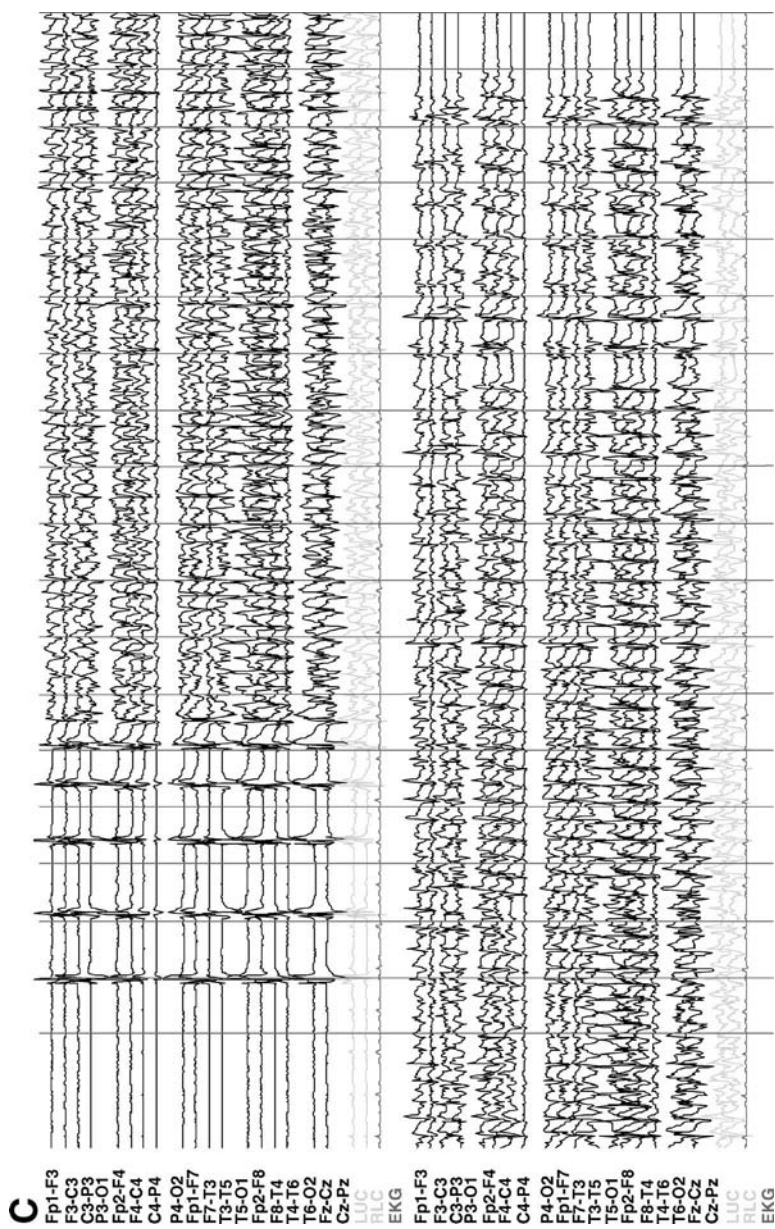 C
Fp1-F3
F3-C3
C3-P3
P3-O1
Fp2-F4
F4-C4
C4-P4
P4-O2
Fp1-F7
F7-T3
T3-T5
T5-O1
Fp2-F8
F8-T4
T4-T6
T6-O2
Fz-Cz
Cz-Pz
LUC
RLC
EKG
Fp1-F3
F3-C3
C3-P3
P3-O1
Fp2-F4
F4-C4
C4-P4
P4-O2
Fp1-F7
F7-T3
T3-T5
T5-O1
Fp2-F8
F8-T4
T4-T6
T6-O2
Fz-Cz
Cz-Pz
LUC
RLC
EKG